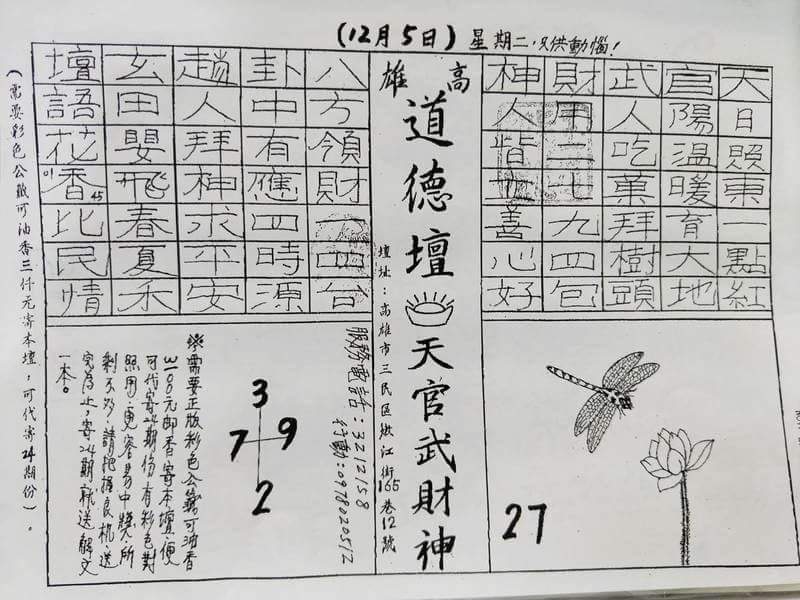 (12月5日)星期二.只供動惱!
天日照東一點紅
官陽溫暖育大地
武人吃菓拜樹頭
財用二七九四包
神人皆善心好
27
高雄
道德壇
天官武財神
壇址:高雄市三民區嫩江街165巷12號
八方領財一四台
卦中有應四時源
趙人拜神求平安
玄田嬰飛春夏禾
壇語花香比民情
01 45
服務電話:3212158
行動:0978020512
3
7 9
2
※需要正版彩色公籤可油香
100元郵香寄本壇,便
可代寄24期份有彩色對
照用,更容易中獎,所
剩不多,請把握良机送
完為止,寄24期就送解文
一本。
(需要彩色公籤可油香三仟元寄本壇,可代寄24期份)。